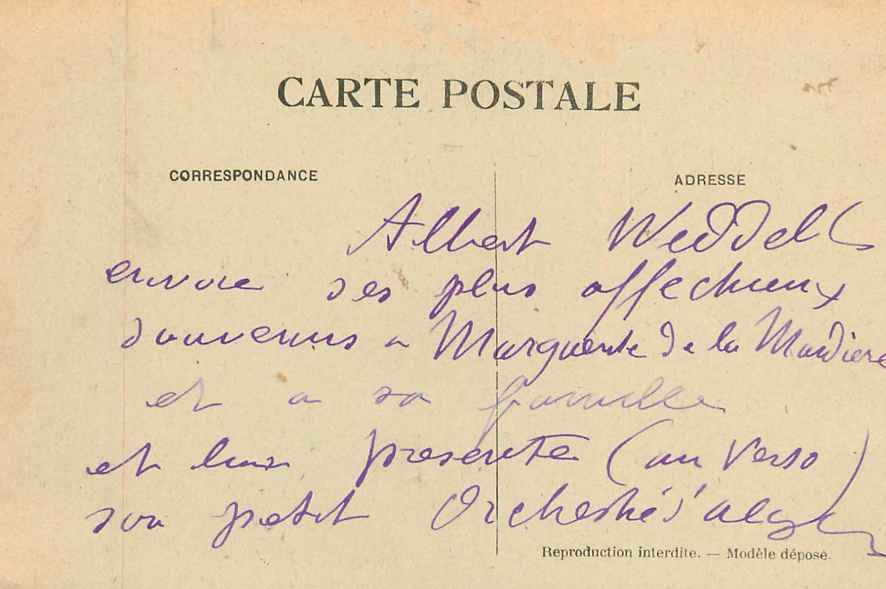 CARTE POSTALE
CORRESPONDANCE
ADRESSE
Albert Weddell
envoie ses plus affectueux
souvenirs a Marguerite de la
et a sa famille
et leur presente (au verso)
son petit Orchestre d'alger
Reproduction interdite. — Modèle déposé.